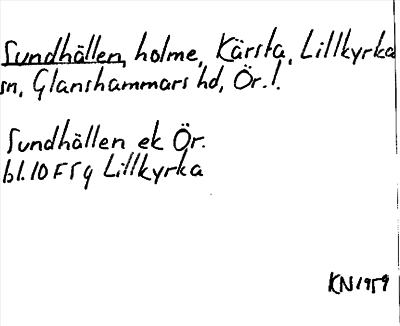 Sundhällen, holme, Kärsta, Lillkyrka
sn, Glanshammars hd, Ör.l.
Sundhällen ek Ör.
bl. 10 F 5 g Lillkyrka
KN 1959